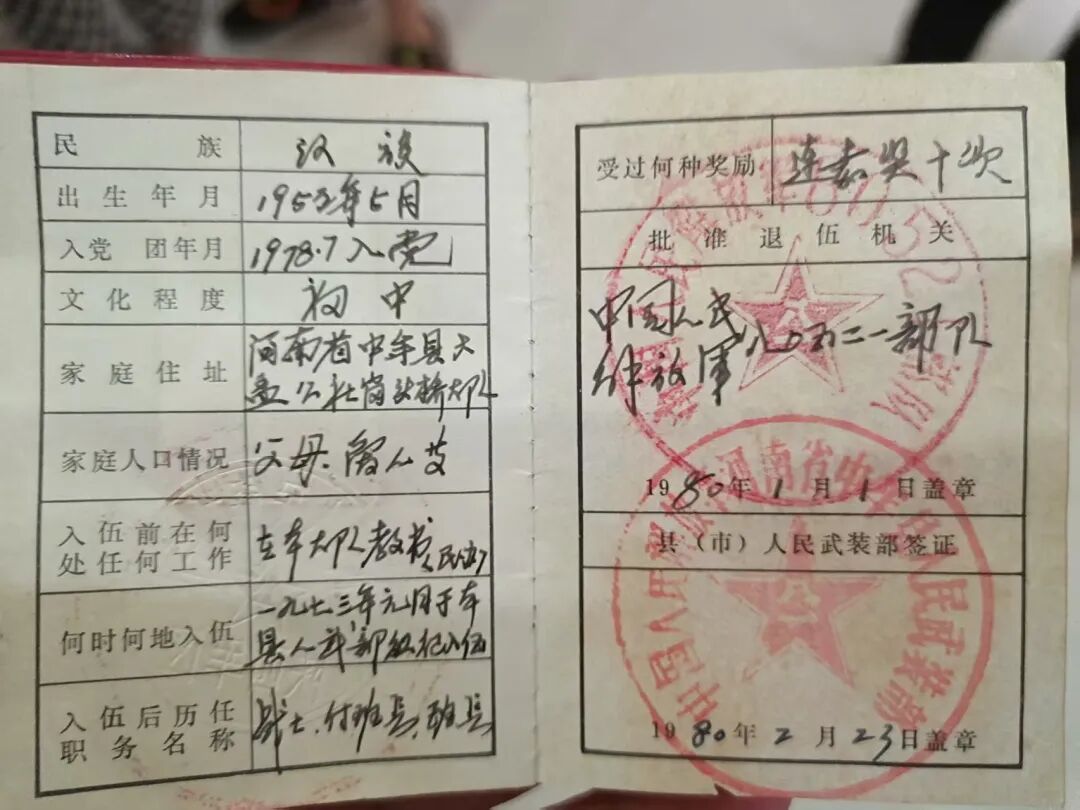 民族 汉族
出生年月 1953年5月
入党团年月 1978.7入党
文化程度 初中
家庭住址 河南省中牟县大
孟公社岗头桥大队
家庭人口情况 父母、
入伍前在何
处任何工作 在本大队教书(民办)
何时何地入伍 一九七三年元月于本
县人武部 入伍
入伍后历任
职务名称 战士、付班长、班长
受过何种奖励 连嘉奖十次
批准退伍机关
中国人民
解放军八〇五二一部队
1980年1月1日盖章
县(市)人民武装部签证
1980年2月23日盖章
中国人民解放军河南省中牟县人民武装部